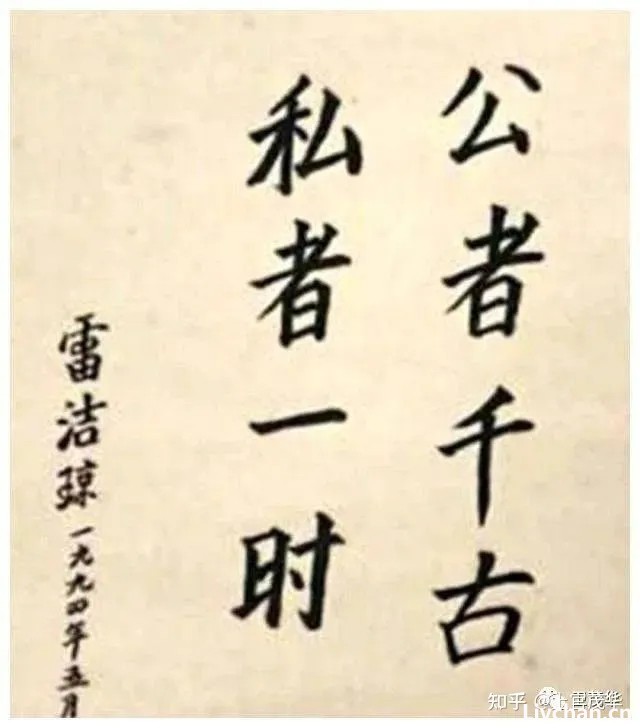 公者千古
私者一时
雷洁琼一九九四年五月
知乎 @雷茂华
Livchan.cn